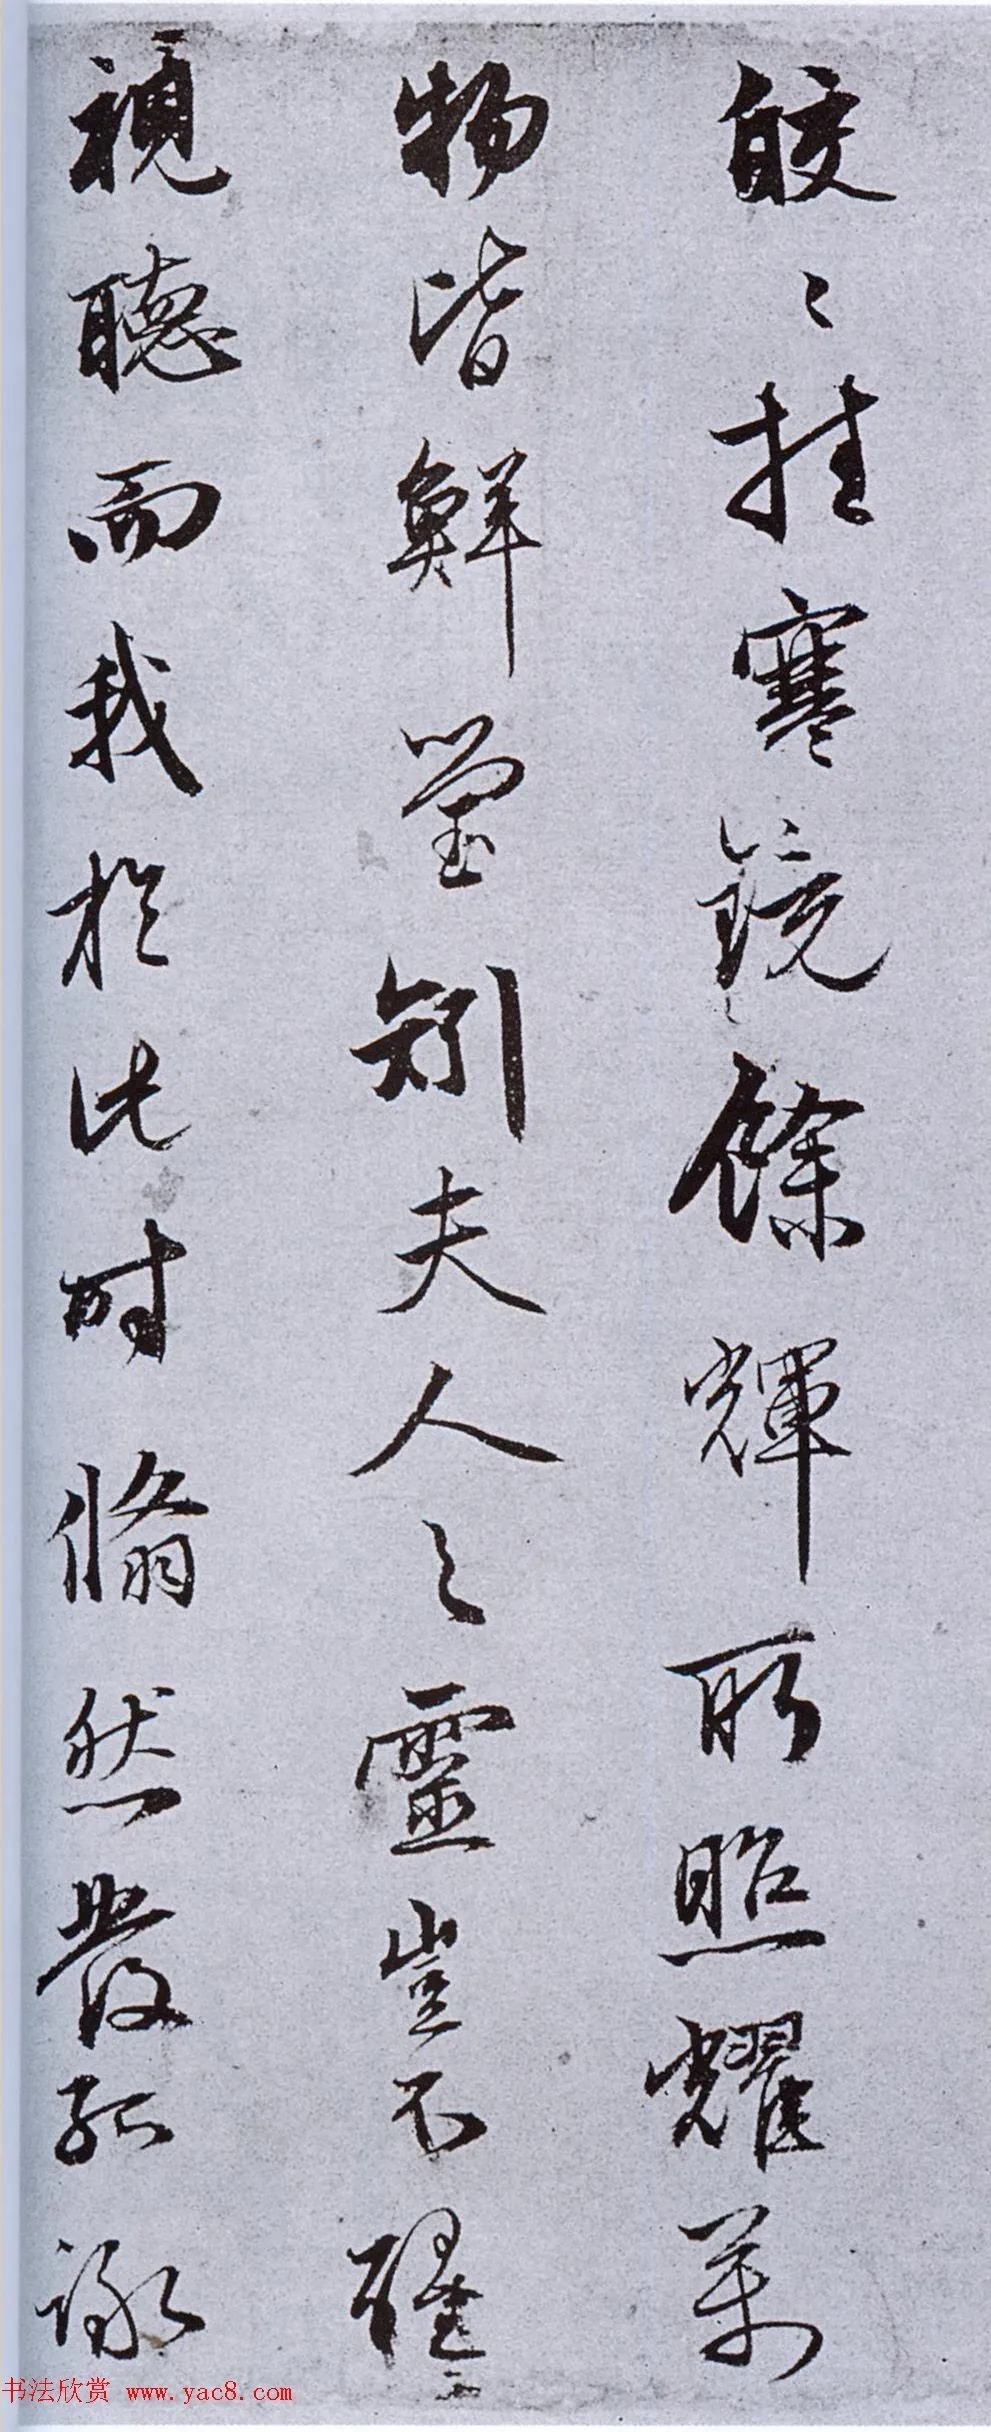 皎〻挂寒鏡餘輝所照耀萬
物皆鮮瑩矧夫人之靈豈不醒
視聽而我於此時翛然發孤詠
书法欣赏 www.yac8.com